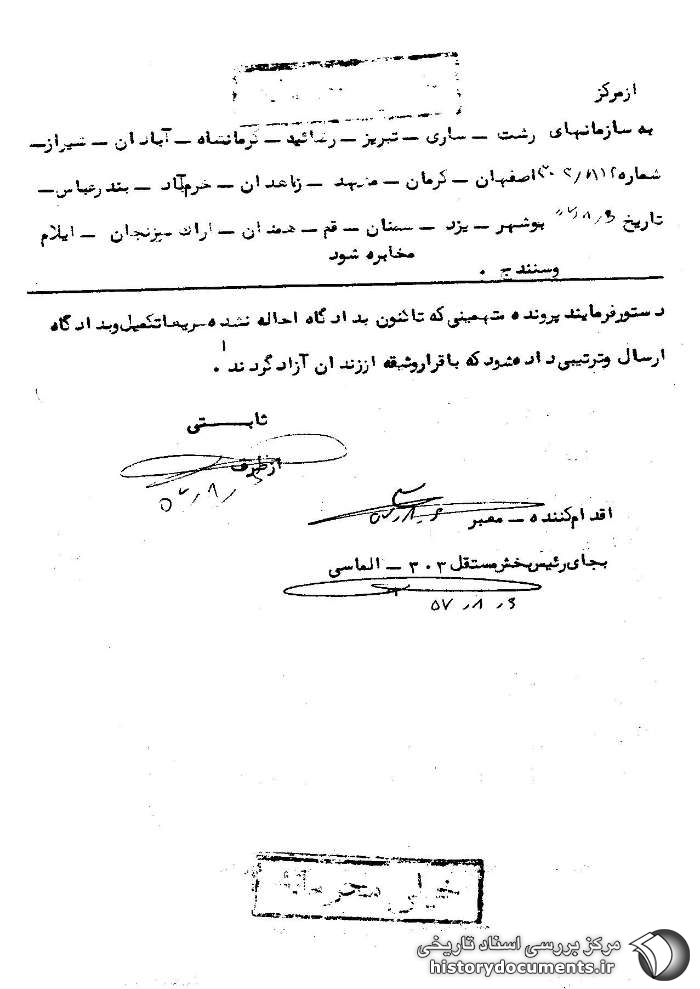 از مرکز
به سازمانهای رشت – ساری – تبریز – رضائیه – کرمانشاه – آبادان – شیراز –
شماره اصفهان – کرمان – مشهد – زاهدان – خرم‌آباد – بندرعباس –
تاریخ ۵۷/۸/۶ بوشهر – یزد – سمنان – قم – همدان – اراک – زنجان – ایلام
مخابره شود
وسنندج .
دستور فرمایند پرونده متهمینی که تاکنون بدادگاه احاله نشده سریعا تکمیل وبدادگاه
ارسال وترتیبی داده شود که با قرار وثیقه اززندان آزاد گردند .
ثابتی
از طرف
۵۷/۸/۶
اقدام کننده – معبر
۵۷/۸/۶
بجای رئیس بخش مستقل ۳۰۳ – الماسی
۵۷/۸/۶
خیلی محرمانه
مرکز بررسی اسناد تاریخی
historydocuments.ir